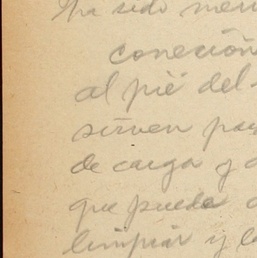 ha sido
conección
al pié del
sirven
de carga y
que puede
limpiar y